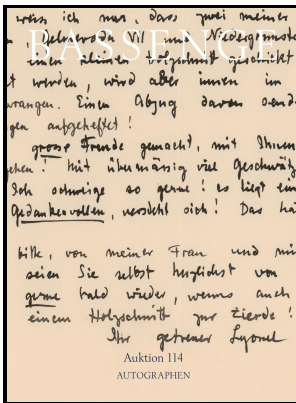 weiss ich nur, dass zwei meiner
BASSENGE
Deborah Vil und Niedergrunste
einen kleinen Holzschnitt geschickt
t werden, wird aber innen im
wrangen. Einen Abzug davon send
gen aufgeheftet!
grosse Freude gemacht, mit Ihnen
gehen! Mit übermässig viel Geschwätz
Ich schweige so gerne! es liegt ein
Gedankenvollen, versteht sich! Das hä
bitte, von meiner Frau und mi
seien Sie selbst herzlichst von
gerne bald wieder, wenns auch
einem Holzschnitt zur Zierde!
Ihr getreuer Lyonel
Auktion 114
AUTOGRAPHEN